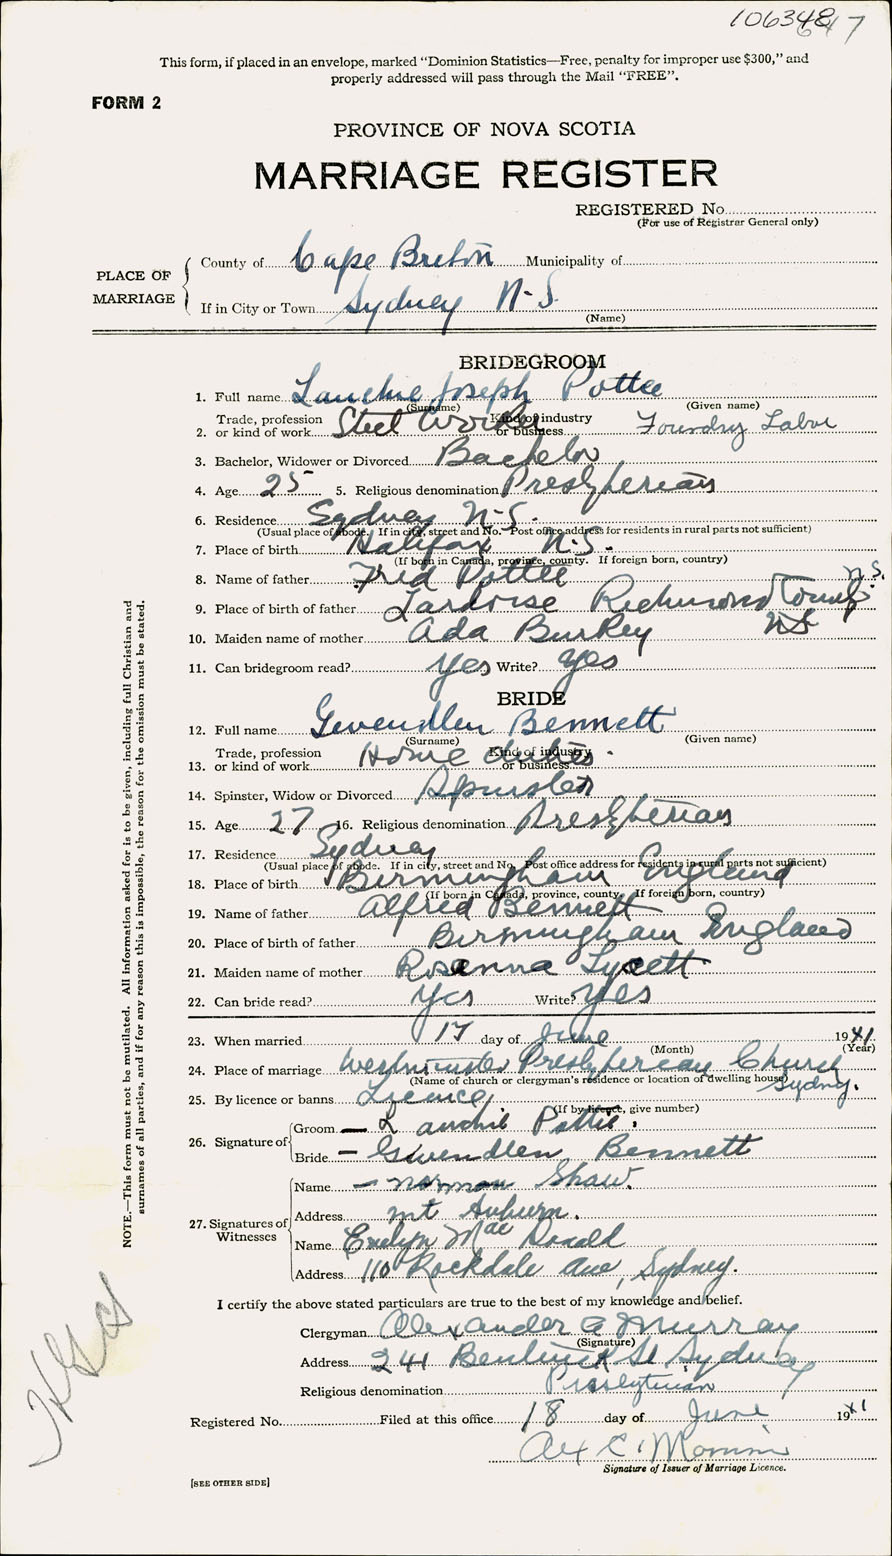 106348
647
This form, if placed in an envelope, marked "Dominion Statistics—Free, penalty for improper use $300," and
properly addressed will pass through the Mail "FREE".
FORM 2
PROVINCE OF NOVA SCOTIA
MARRIAGE REGISTER
REGISTERED No.
(For use of Registrar General only)
PLACE OF MARRIAGE
County of Cape Breton Municipality of
If in City or Town Sydney N-S.
(Name)
BRIDEGROOM
1. Full name Lauchie Joseph Pottie
(Surname) (Given name)
2. Trade, profession or kind of work Steel Worker Kind of industry or business Foundry Labor
3. Bachelor, Widower or Divorced Bachelor
4. Age 25 5. Religious denomination Presbyterian
6. Residence Sydney N-S.
(Usual place of abode. If in city, street and No. Post office address for residents in rural parts not sufficient)
7. Place of birth Halifax N.S.
(If born in Canada, province, county. If foreign born, country)
8. Name of father Fred Pottie
9. Place of birth of father Lardoise Richmond County N.S.
NS
10. Maiden name of mother Ada Burkey
11. Can bridegroom read? yes Write? yes
BRIDE
12. Full name Gwendlen Bennett
(Surname) (Given name)
13. Trade, profession or kind of work Home duties. Kind of industry or business
14. Spinster, Widow or Divorced Spinster
15. Age 27 16. Religious denomination Presbyterian
17. Residence Sydney
(Usual place of abode. If in city, street and No. Post office address for residents in rural parts not sufficient)
18. Place of birth Birmingham England
(If born in Canada, province, county. If foreign born, country)
19. Name of father Alfred Bennett
20. Place of birth of father Birmingham England
21. Maiden name of mother Rosanna Lycett
22. Can bride read? yes Write? yes
23. When married 17 day of June 1941
(Month) (Year)
24. Place of marriage Westminster Presbyterian Church
(Name of church or clergyman's residence or location of dwelling house) Sydney.
25. By licence or banns Licence,
(If by licence, give number)
26. Signature of
Groom — Lauchie Pottie.
Bride — Gwendlen Bennett
27. Signatures of Witnesses
Name — Norman Shaw.
Address mt Auburn.
Name Evelyn MacDonald
Address 110 Rockdale Ave, Sydney.
I certify the above stated particulars are true to the best of my knowledge and belief.
Clergyman Alexander A Murray
(Signature)
Address 241 Bentinck St Sydney
Religious denomination Presbyterian
Registered No. Filed at this office 18 day of June 1941
Alex C.
Signature of Issuer of Marriage Licence.
[SEE OTHER SIDE]
NOTE.—This form must not be mutilated. All information asked for is to be given, including full Christian and
surnames of all parties, and if for any reason this is impossible, the reason for the omission must be stated.